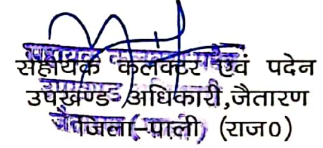 सहायक कलक्टर एवं पदेन
उपखण्ड अधिकारी,जैतारण
जिला-पाली (राज०)